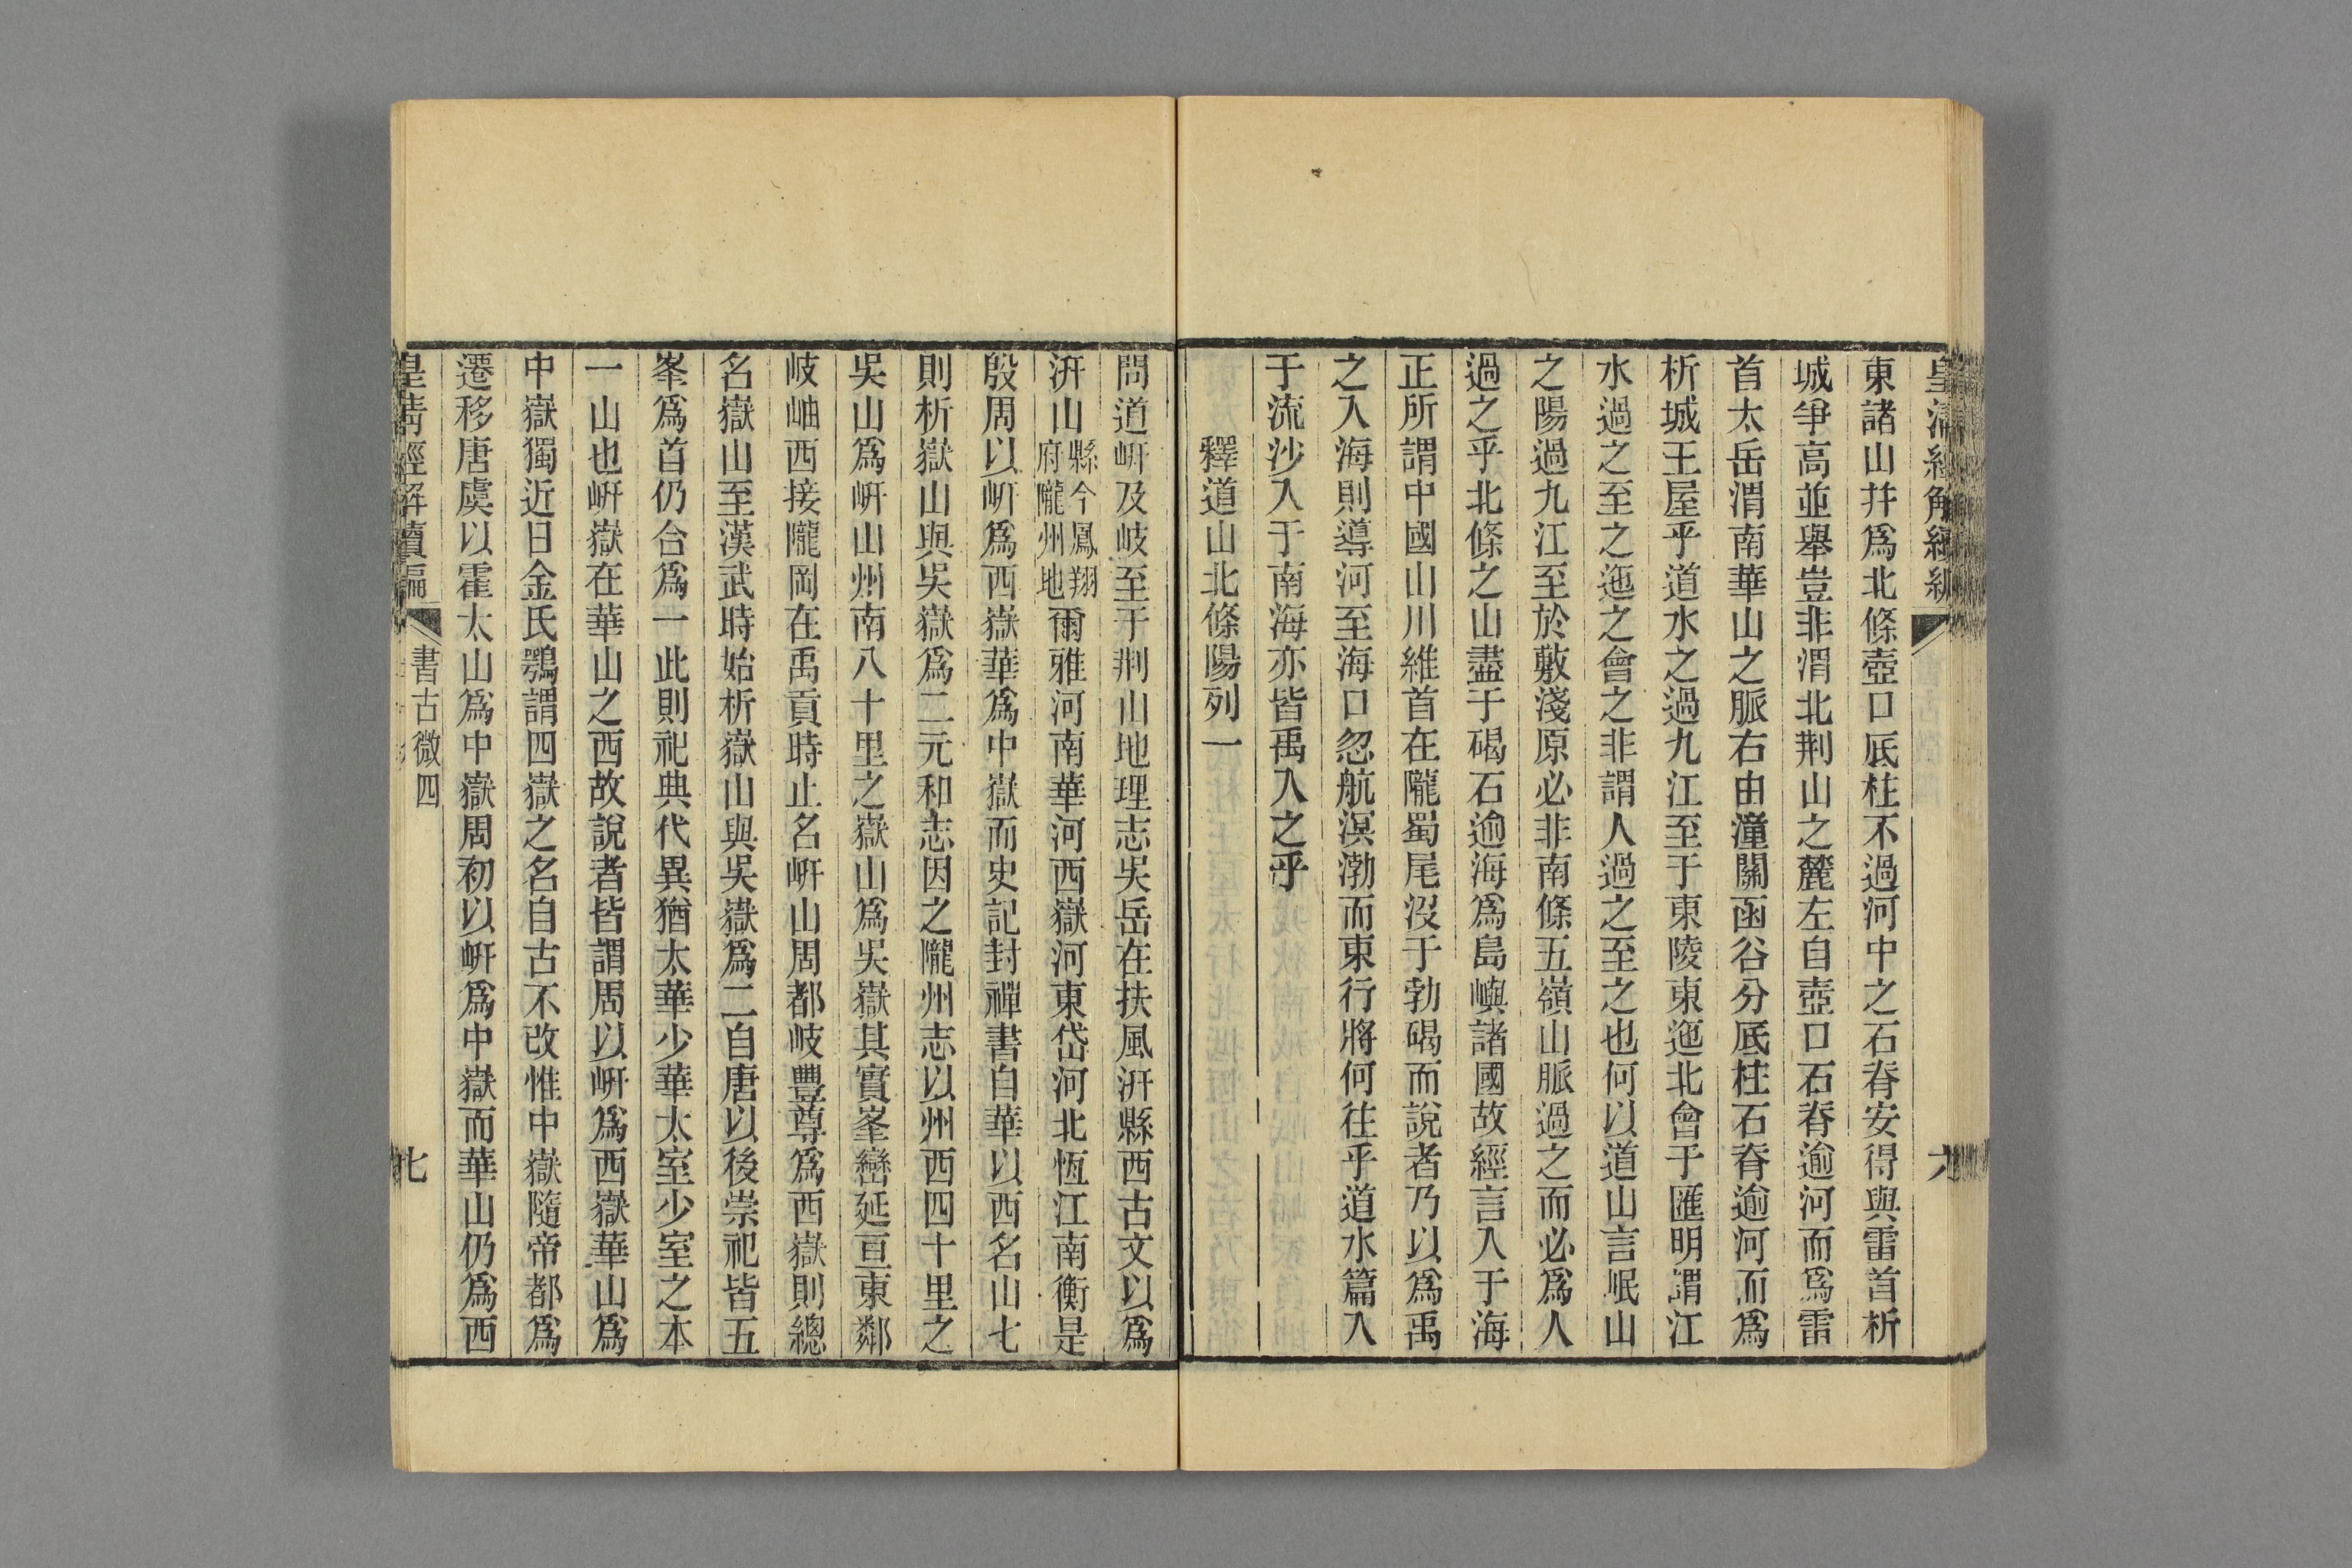 東諸山幷爲北條壺口厎柱不過河中之石脊安得與雷首析
城爭高並舉豈非渭北荆山之麓左自壺口石脊逾河而爲雷
首太岳渭南華山之脈右由潼關函谷分厎柱石脊逾河而爲
析城王屋乎道水之過九江至于東陵東迤北會于匯明謂江
水過之至之迤之會之非謂人過之至之也何以道山言岷山
之陽過九江至於敷淺原必非南條五嶺山脈過之而必爲人
過之乎北條之山盡于碣石逾海爲島嶼諸國故經言入于海
正所謂中國山川維首在隴蜀尾沒于勃碣而說者乃以爲禹
之入海則導河至海口忽航溟渤而東行將何往乎道水篇入
于流沙入于南海亦皆禹入之乎
釋道山北條陽列一
問道岍及岐至于荆山地理志吳岳在扶風汧縣西古文以爲
汧山縣今鳳翔府隴州地爾雅河南華河西嶽河東岱河北恆江南衡是
殷周以岍爲西嶽華爲中嶽而史記封禪書自華以西名山七
則析嶽山與吳嶽爲二元和志因之隴州志以州西四十里之
吳山爲岍山州南八十里之嶽山爲吳嶽其實峯巒延亘東鄰
岐岫西接隴岡在禹貢時止名岍山周都岐豐尊爲西嶽則總
名嶽山至漢武時始析嶽山與吳嶽爲二自唐以後崇祀皆五
峯爲首仍合爲一此則祀典代異猶太華少華太室少室之本
一山也岍嶽在華山之西故說者皆謂周以岍爲西嶽華山爲
中嶽獨近日金氏鶚謂四嶽之名自古不改惟中嶽隨帝都爲
遷移唐虞以霍太山爲中嶽周初以岍爲中嶽而華山仍爲西
皇清經解續編
書古微四
七